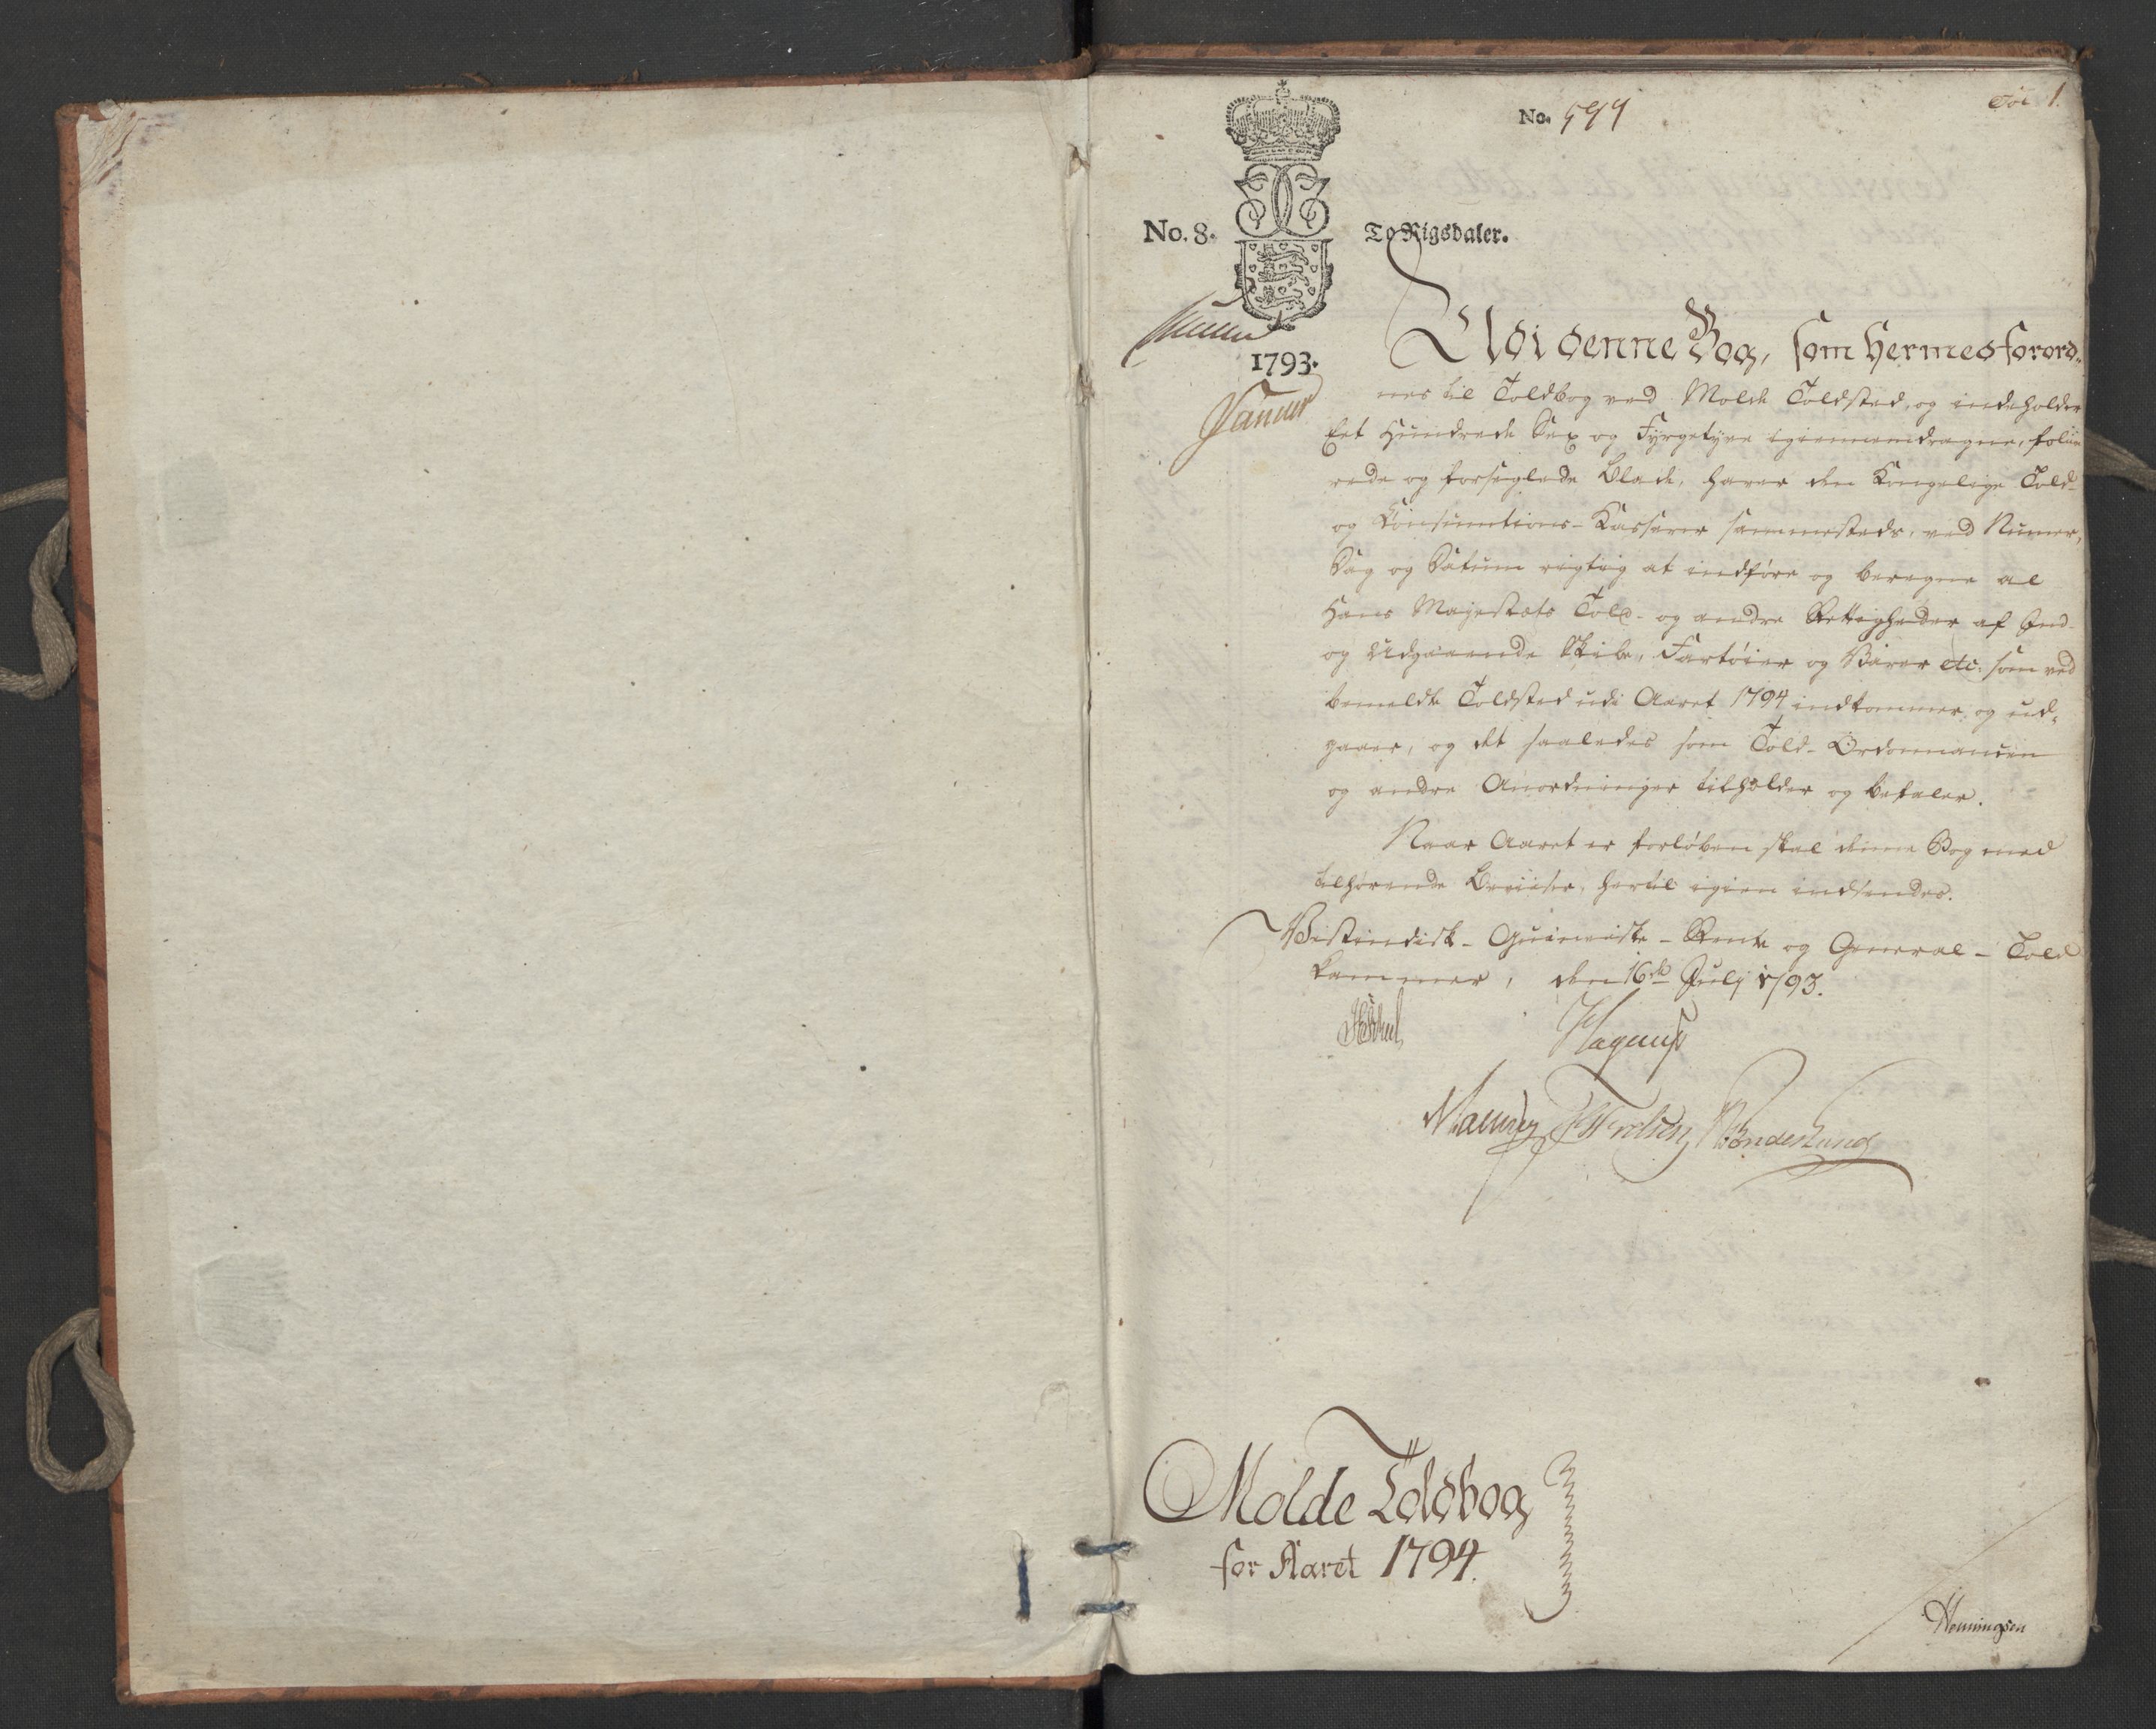 No. 544
Fol 1.
No. 8.
To Rigsdaler.
1793.
Udi denne Bog, som hermed forord-
nes til Toldbog ved Molde Toldsted, og indeholder
Eet Hundrede Sex og Fyrgetyve igiennemdragne, folie-
rede og forseglede Blade, haver den Kongelige Told-
og Consumtions-Casserer sammesteds, ved Numer,
Dag og Datum rigtig at indføre og beregne al
Hans Majestæts Told- og andre Rettigheder af Ind-
og Udgaaende Skibe, Fartøier og Varer etc. som ved
bemeldte Toldsted udi Aaret 1794 indkommer og ud-
gaaer, og det saaledes som Told-Ordonnancen
og andre Anordninger tilholder og befaler.
Naar Aaret er forløben skal denne Bog med
tilhørende Beviiser, hertil igien indsendes.
Vestindisk-Guineiske-Rente og General-Told
kammer, den 16de Julj 1793.
Molde Toldbog
for Aaret 1794.
Henningsen